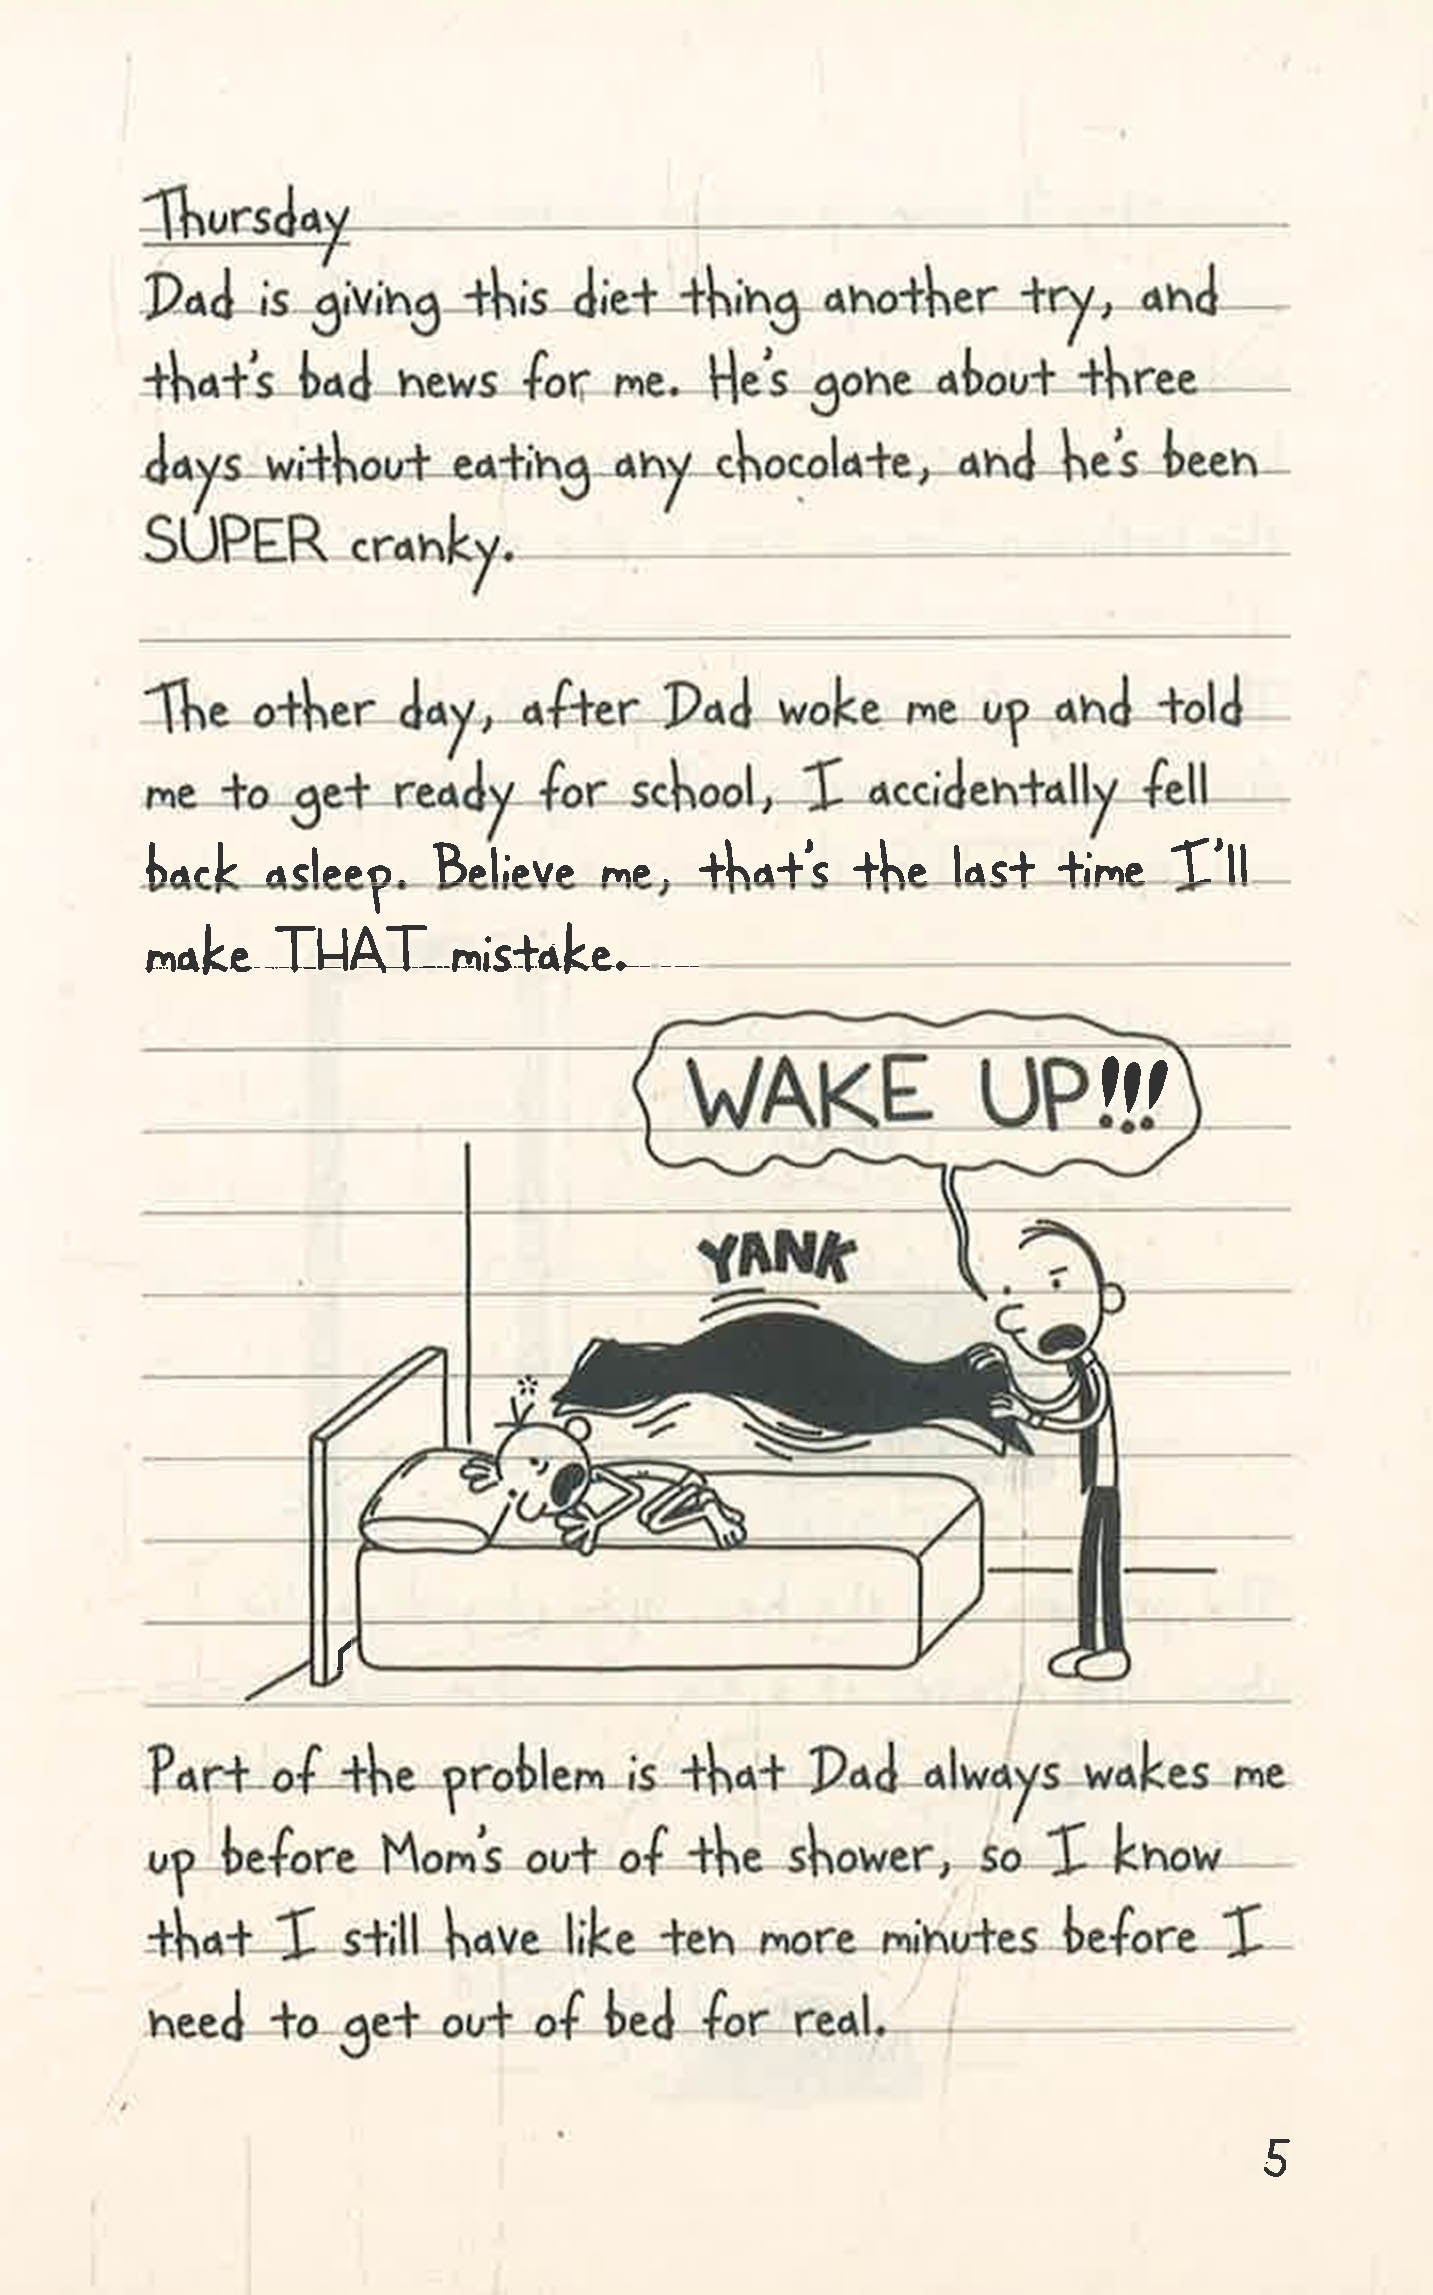 Thursday
Dad is giving this diet thing another try, and
that's bad news for me. He's gone about three
days without eating any chocolate, and he's been
SUPER cranky.
The other day, after Dad woke me up and told
me to get ready for school, I accidentally fell
back asleep. Believe me, that's the last time I'll
make THAT mistake.
WAKE UP!!!
YANK
Part of the problem is that Dad always wakes me
up before Mom's out of the shower, so I know
that I still have like ten more minutes before I
need to get out of bed for real.
5